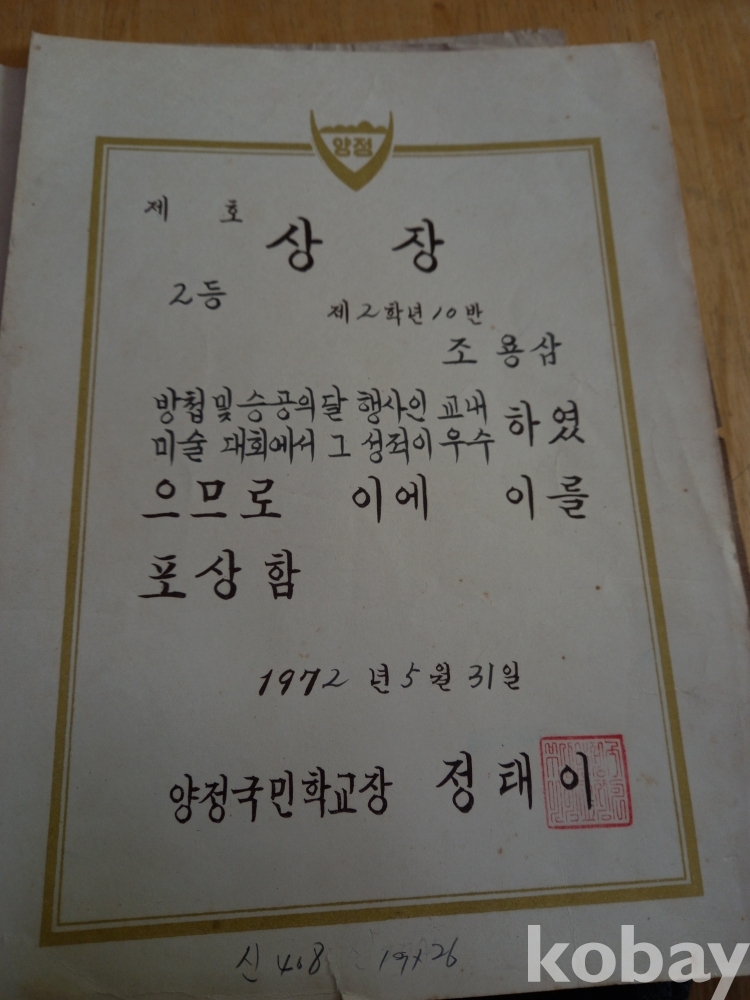 양정
제 호
상 장
2등
제2학년10반
조용삼
방첩및승공의달 행사인 교내
미술 대회에서 그 성적이우수 하였
으므로 이에 이를
포상함
1972년5월31일
양정국민학교장 정태이
신 408 19×26
kobay